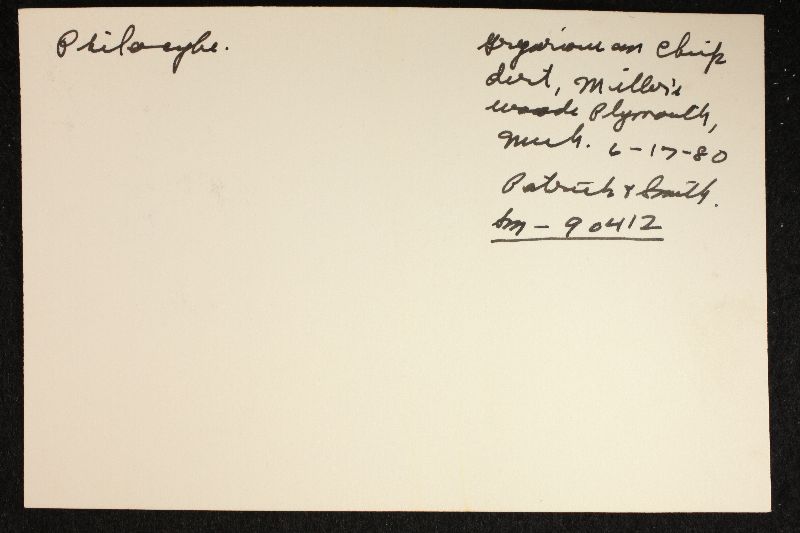 Psilocybe.
Gregarious on chip
dirt, Miller's
woods Plymouth,
Mich. 6-17-80
Patrick & Smith.
Sm-90412